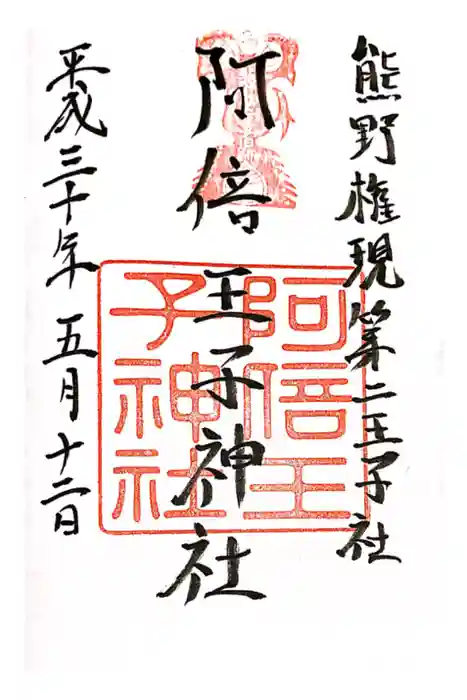 熊野権現第二王子社
阿倍王子神社
阿倍王
子神社
平成三十年五月十二日